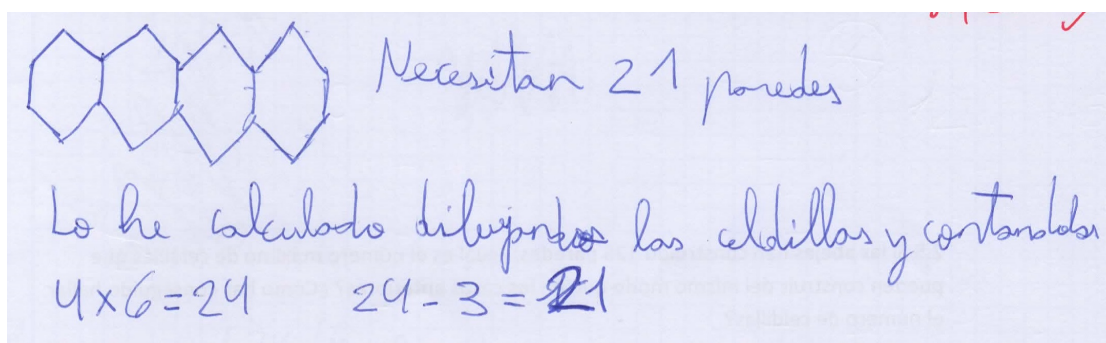 Necesitan 21 paredes
Lo he calculado dibujando las celdillas y contandolas
4x6=24 24-3=21